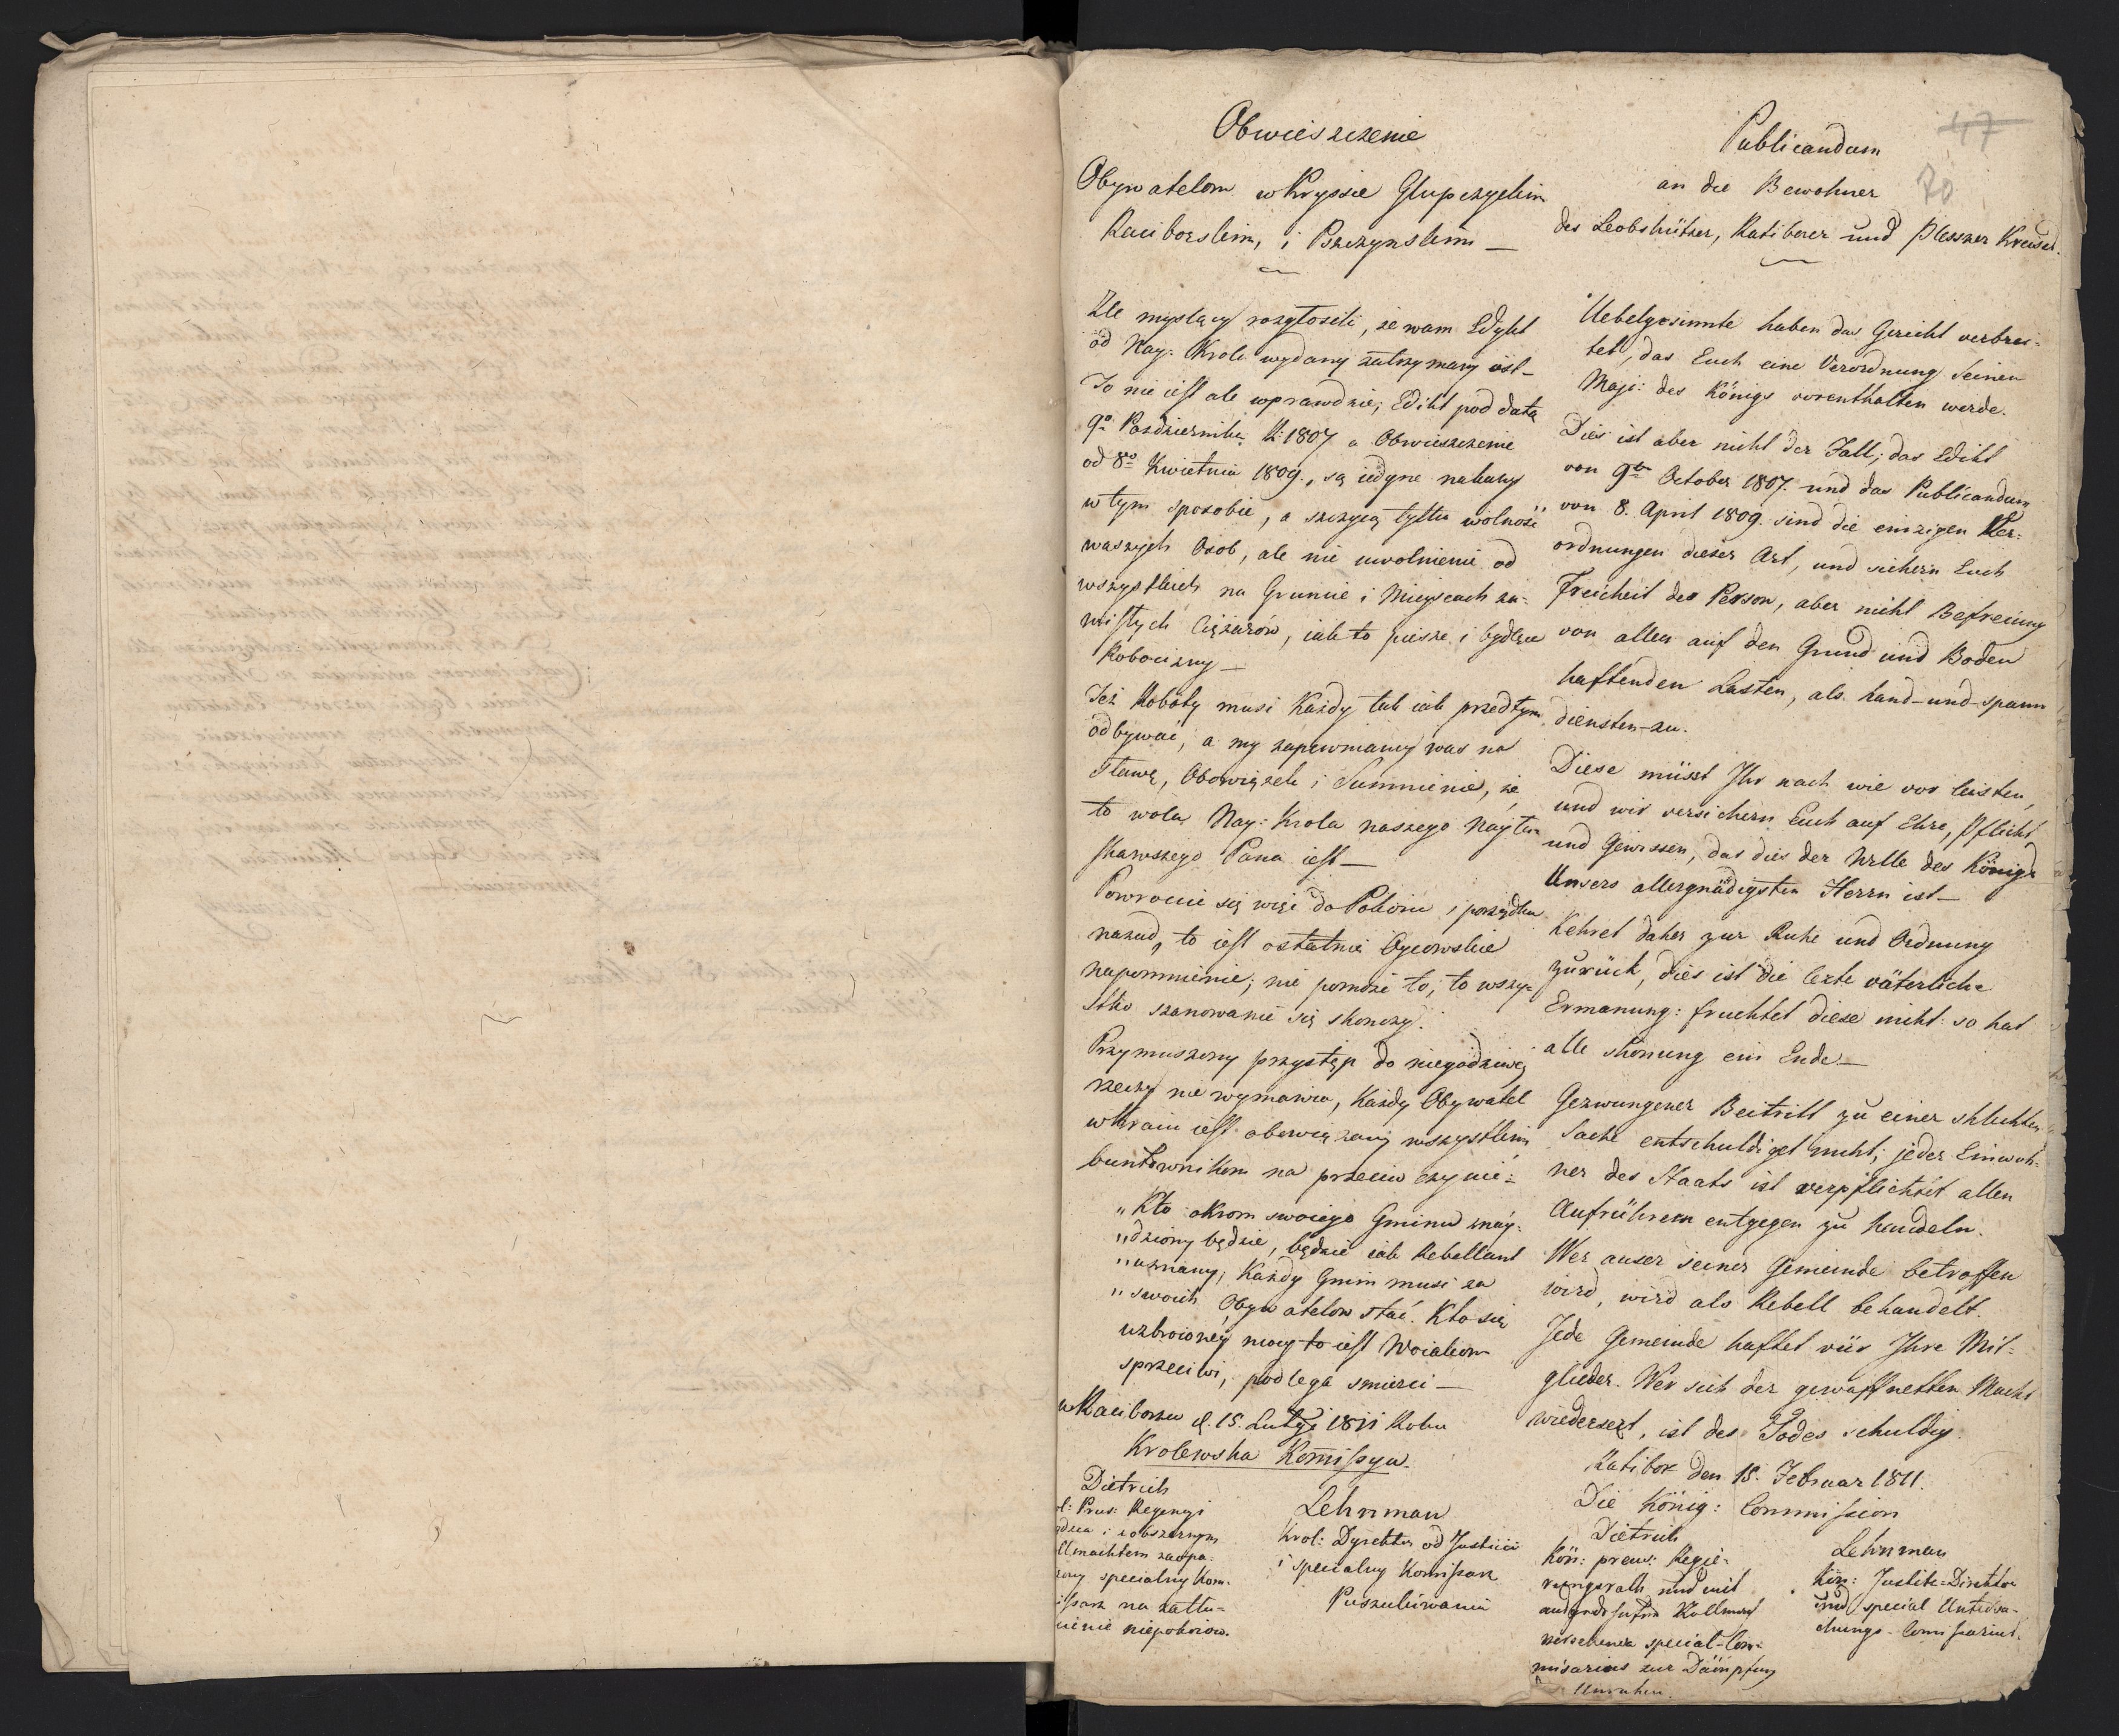 Obwieszczenie
Obywatelom w Kryssie Glupczyckim
Raciborskim, i Pszczynskim —
Zle myslący rozgłosili, że wam Edykt
od Nay: Krola wydany zatrzymany iest —
To nie iest ale wprawdzie; Edikt pod datą
9º Pazdziernika R: 1807 a Obwieszczenie
od 8º Kwietnia 1809. są iedyne nakazy
w tym sposobie, a szczycą tylko wolność
waszych Osob, ale nie uwolnienie od
wszystkich na Gruncie i Mieyscach za-
wisłych Ciężarów, iak to piesze i bydlęce
Robocizny —
Też Roboty musi Każdy tak iak przedtym
odbywać, a my zapewniamy was na
Sławę, Obowiązek i Sumnienie, że
to wola Nay: Krola naszego Nayła-
skawszego Pana iest —
Powrocie się więc do Pokoiu i porządku
nazad, to iest ostatnie Oycowskie
napomnienie; nie pomoże to, to wszy-
stko szanowanie się skonczy.
Przymuszony przystęp do niegodziwey
rzeczy nie wymawia, Każdy Obywatel
w kraiu iest obowiązany wszystkim
buntownikom na przeciw czynić:
„Kto okrom swoiego Gminu znay-
„dziony będzie, będzie iak Rebellant
„uznany; Każdy Gmin musi za
„swoich Obywatelow stać. Kto się
uzbroioney mocy to iest Woiakom
sprzeciwi, podlega smierci —
w Raciborzu d. 15. Lutego 1811 Roku
Krolewska Komissya.
Dietrich
l: Prus: Regencyi
dzca i obszernym
llmachtem zaopa-
zony specialny Kom-
issarz na zattu-
mienie niepokoiow.
Lehnman
Krol: Dyrektor od Justicii
i specialny Komissarz
Puszukiwania
47
70
Publicandum
an die Bewohner
des Leobshützer, Ratiborer und Plessner Kreises.
Uebelgesinnte haben das Gerücht verbrei-
tet, das Euch eine Verordnung Seiner
Maje: des Königs vorenthalten werde.
Dies ist aber nicht der Fall; das Edikt
von 9ten October 1807. und das Publicandum
von 8. April 1809. sind die einzigen Ver-
ordnungen dieser Art, und sichern Euch
Freicheit der Person, aber nicht Befreiung
von allen auf den Grund und Boden
haftenden Lasten, als hand-und-spann
diensten-zu.
Diese müsst Ihr nach wie vor leisten,
und wir versichern Euch auf Ehre, Pflicht
und Gewissen, das dies der Wille des Königs
Unsers allergnädigsten Herrn ist —
Kehret daher zur Ruhe und Ordnung
zurück, dies ist die lezte väterliche
Ermanung: fruchtet diese nicht: so hat
alle shonung ein Ende —
Gezwungener Beitritt zu einer shlechten
Sache entschuldiget nicht; jeder Einwoh-
ner des Staats ist verpflichtet allen
Aufrührern entgegen zu handeln.
Wer auser seiner Gemeinde betroffen
wird, wird als Rebell behandelt.
Jede Gemeinde haftet vür Ihre Mit-
glieder. Wer sich der gewaffnetten Macht
wiedersezt, ist des Todes schuldig.
Ratibor den 15. Februar 1811.
Die König: Commission
Dietrich
Kön: preus: Regie-
rungsrath und mit
Vollmacht
versehener special-Com-
misarius zur Dämpfung
Unruhen.
Lehnman
Kön: Justitz-Direktor
und special Untersu-
chungs-Comissarius.